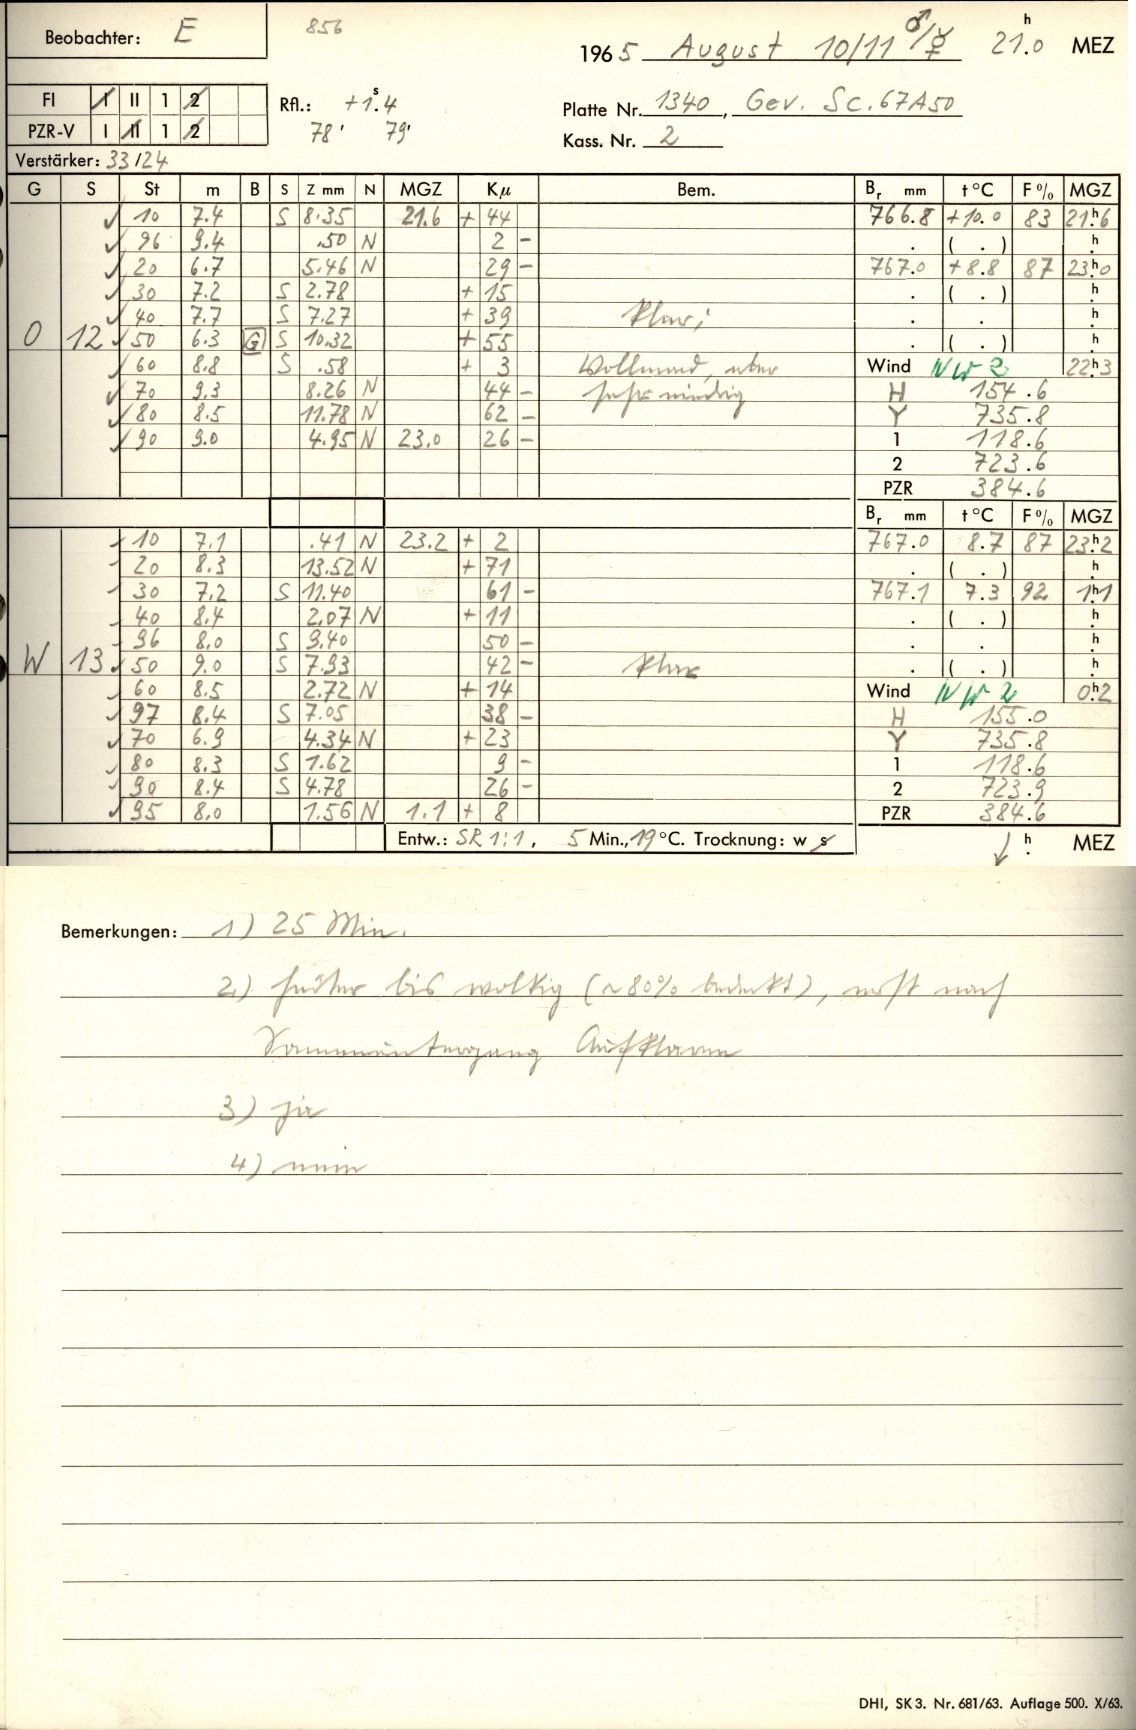 Beobachter: E 856 1965 August 10/11 ♂/☿ 21.0 h MEZ
FI I II 1 2 Rfl.: +1.4 s Platte Nr. 1340, Gev. Sc. 67A50
PZR-V I II 1 2 78' 79' Kass. Nr. 2
Verstärker: 33/24
G S St m B S Z mm N MGZ Kμ Bem. Br mm t °C F % MGZ
✓ 10 7.4 S 8.35 21.6 + 44 766.8 +10.0 83 21.h6
✓ 96 9.4 .50 N 2 - . ( . ) h
✓ 20 6.7 5.46 N 29 - 767.0 +8.8 87 23.h0
✓ 30 7.2 S 2.78 + 15 . ( . ) h
✓ 40 7.7 S 7.27 + 39 klar; . . h
O 12 ✓ 50 6.3 G S 10.32 + 55 . ( . ) h
✓ 60 8.8 S .58 + 3 Vollmond, aber Wind NW 2 22.h3
✓ 70 9.3 8.26 N 44 - sehr niedrig H 154.6
✓ 80 8.5 11.78 N 62 - Y 735.8
✓ 90 9.0 4.95 N 23.0 26 - 1 118.6
2 723.6
PZR 384.6
Br mm t °C F % MGZ
✓ 10 7.1 .41 N 23.2 + 2 767.0 8.7 87 23.h2
✓ 20 8.3 13.52 N + 71 . ( . ) h
✓ 30 7.2 S 11.40 61 - 767.1 7.3 92 1.h1
✓ 40 8.4 2.07 N + 11 . ( . ) h
✓ 96 8.0 S 9.40 50 - . . h
W 13 ✓ 50 9.0 S 7.93 42 - klar . ( . ) h
✓ 60 8.5 2.72 N + 14 Wind NW 2 0.h2
✓ 97 8.4 S 7.05 38 - H 155.0
✓ 70 6.9 4.34 N + 23 Y 735.8
✓ 80 8.3 S 1.62 9 - 1 118.6
✓ 90 8.4 S 4.78 26 - 2 723.9
✓ 95 8.0 1.56 N 1.1 + 8 PZR 384.6
Entw.: SR 1:1, 5 Min., 19 °C. Trocknung: w s ↓ h MEZ
Bemerkungen: 1) 25 Min.
2) heiter bis wolkig (~80% bedeckt), erst nach
Sonnenuntergang Aufklaren
3) ja
4) nein
DHI, SK 3. Nr. 681/63. Auflage 500. X/63.